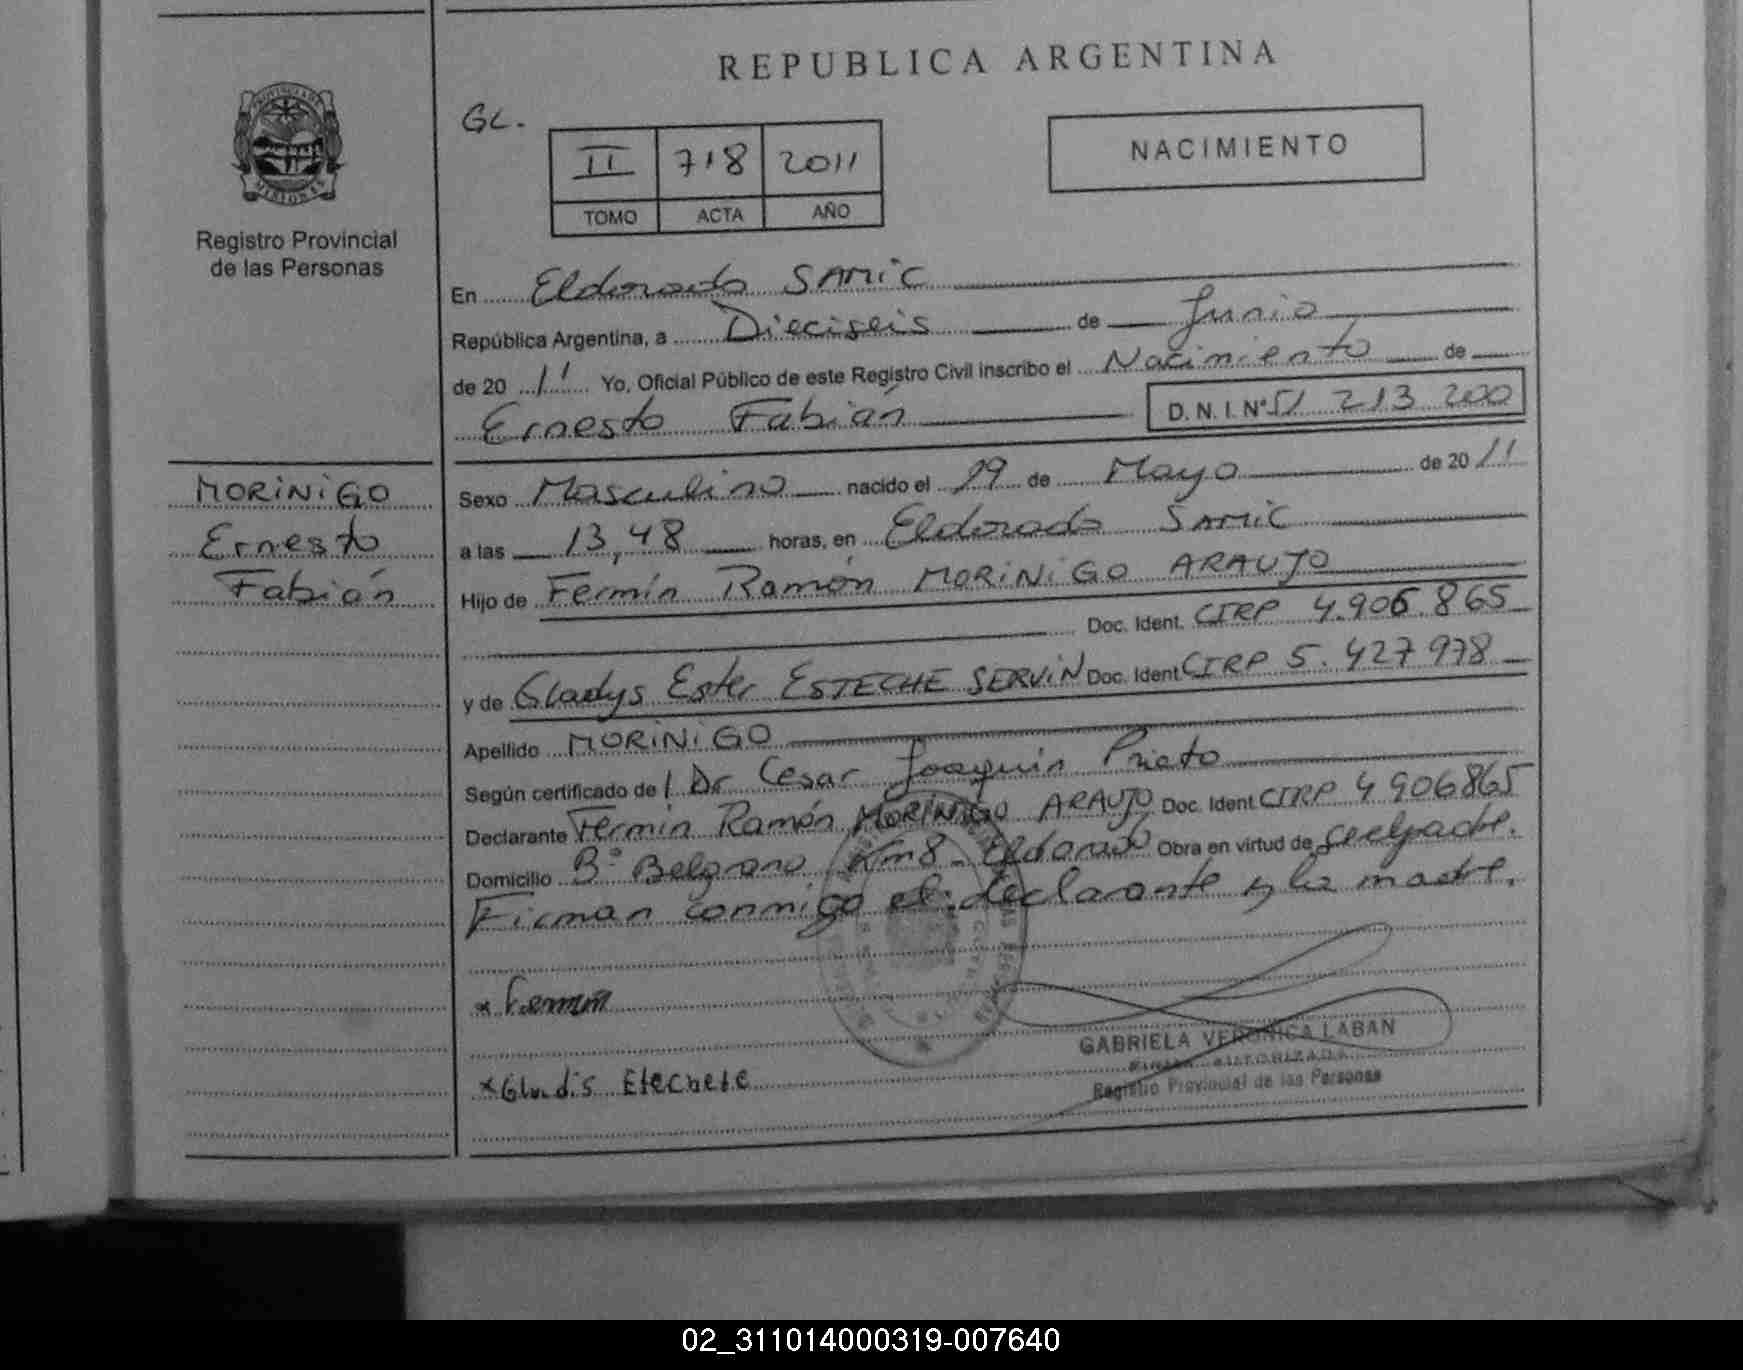 REPUBLICA ARGENTINA
GL.
NACIMIENTO
II 718 2011
TOMO ACTA AÑO
PROVINCIA DE MISIONES
Registro Provincial
de las Personas
En Eldorado SAMIC
República Argentina, a Dieciseis de Junio
de 2011 Yo, Oficial Público de este Registro Civil inscribo el Nacimiento de
Ernesto Fabián D. N. I. Nº 51 213 200
MORINIGO
Ernesto
Fabián
Sexo Masculino nacido el 29 de Mayo de 2011
a las 13,48 horas, en Eldorado SAMIC
Hijo de Fermín Ramón MORINIGO ARAUJO
Doc. Ident. CIRP 4.906.865
y de Gladys Ester ESTECHE SERVIN Doc. Ident CIRP 5.427978
Apellido MORINIGO
Según certificado de l Dr Cesar Joaquin Prieto
Declarante Fermín Ramón MORINIGO ARAUJO Doc. Ident CIRP 4 906865
Domicilio Bº Belgrano Km8 - Eldorado Obra en virtud de ser el padre.
Firman conmigo el declarante y la madre.
* Fermin
GABRIELA VERONICA LABAN
FIRMA AUTORIZADA
Registro Provincial de las Personas
*Gludis Etechete
02_311014000319-007640